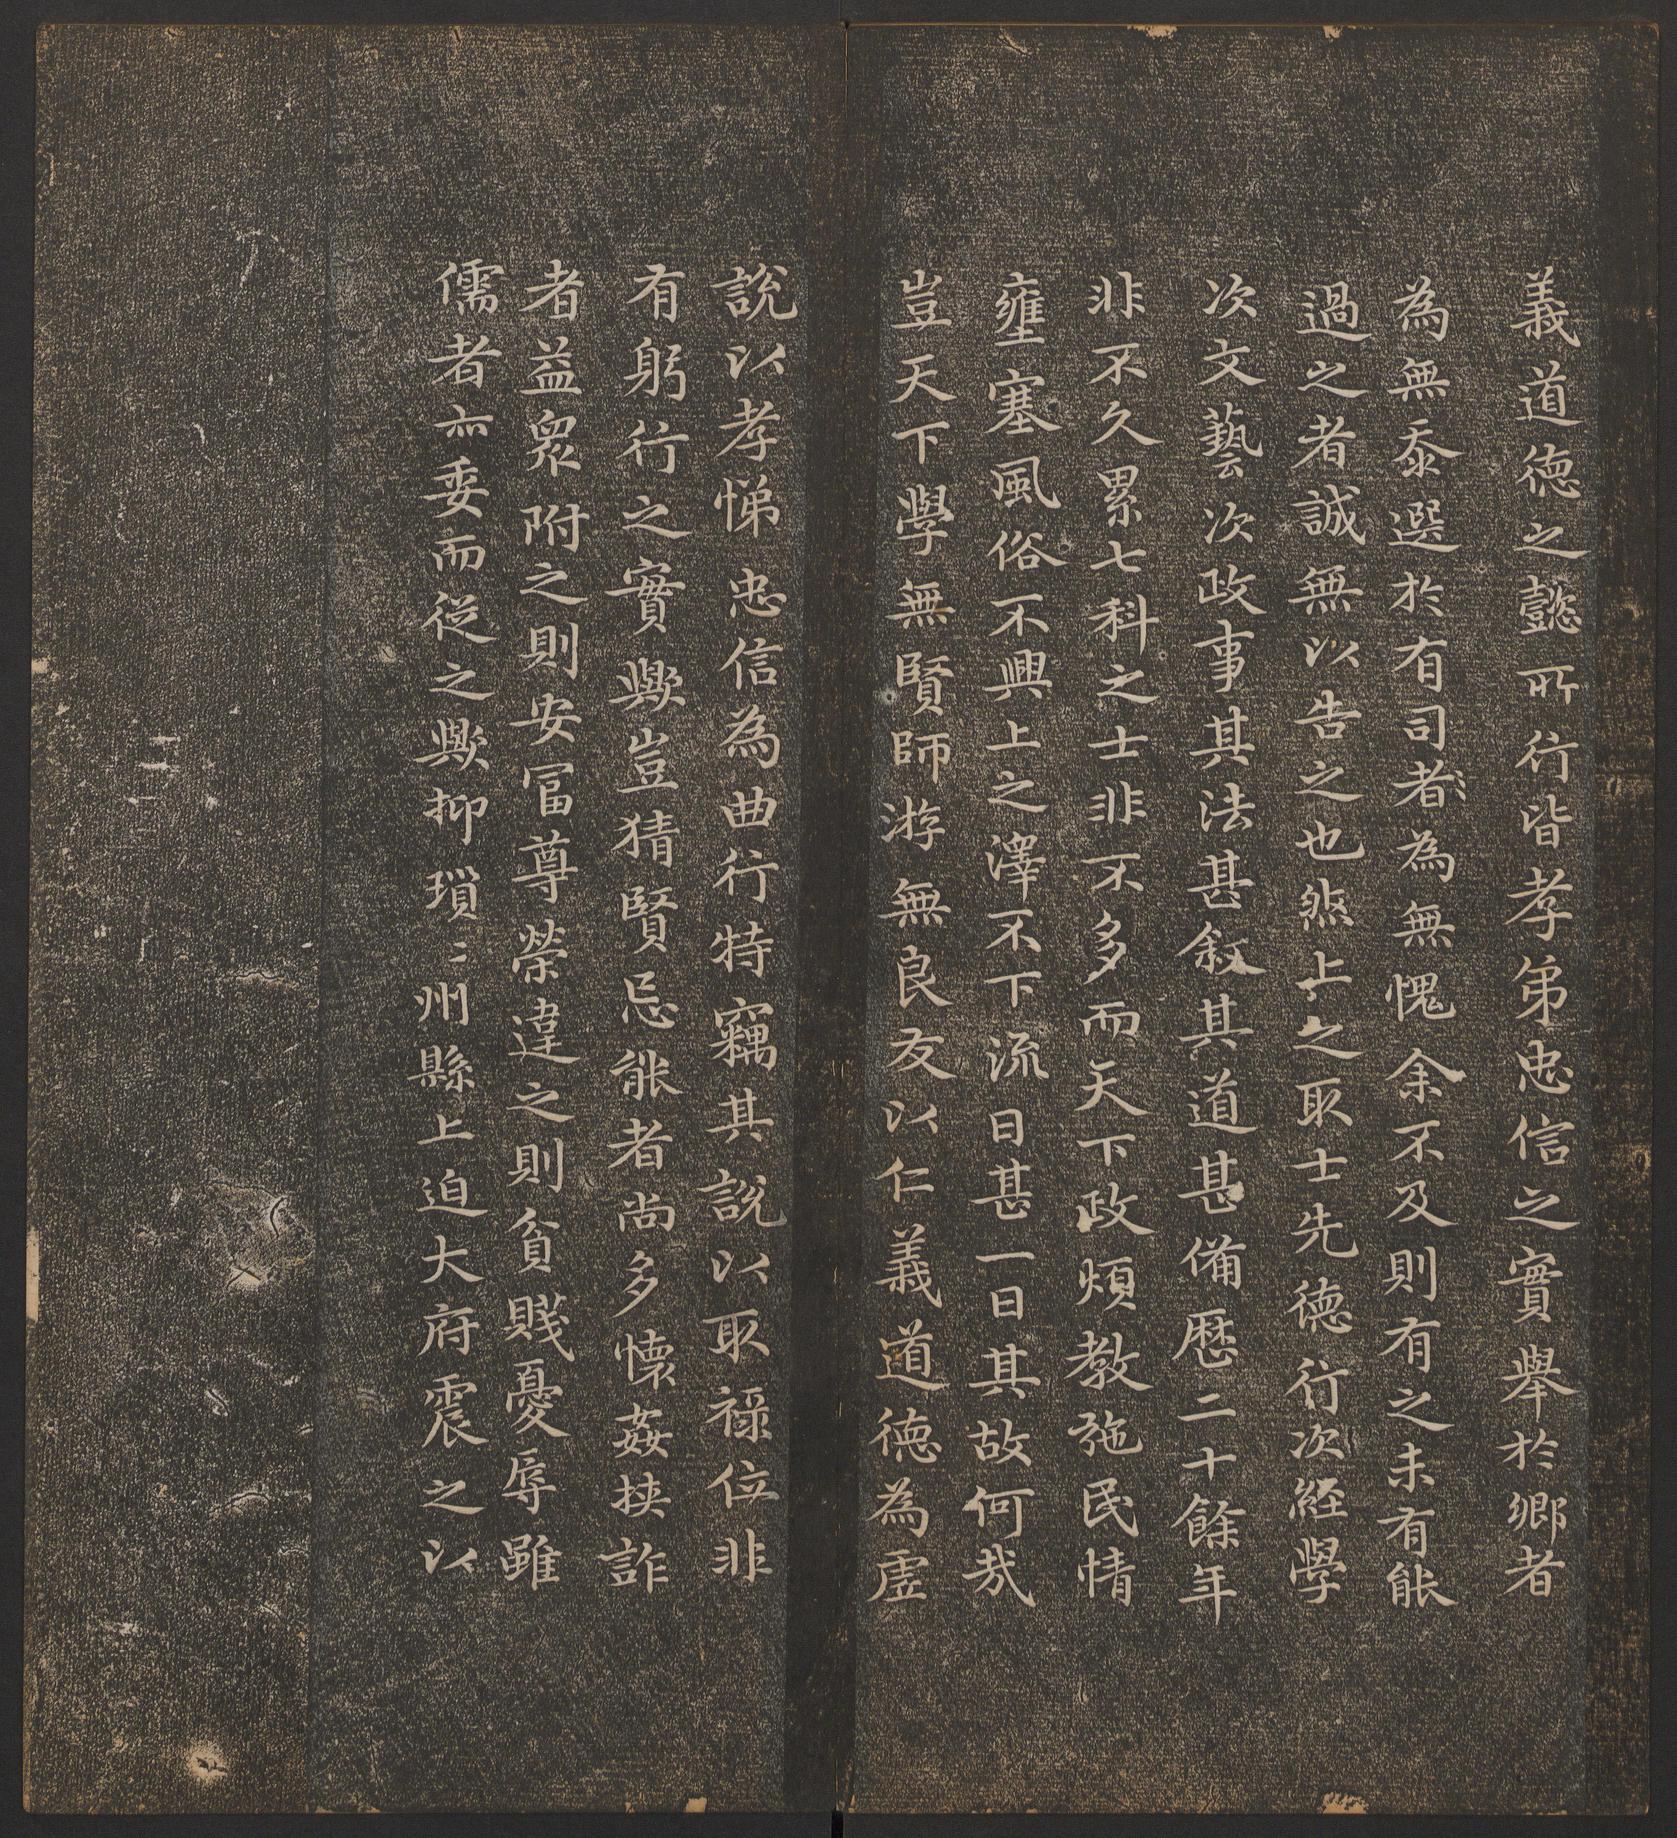 義道德之懿所行皆孝弟忠信之實舉於鄉者
為無忝選於有司者為無愧余不及則有之未有能
過之者誠無以告之也然上之取士先德行次經學
次文藝次政事其法甚叙其道甚備歷二十餘年
非不久累七科之士非不多而天下政煩教弛民情
壅塞風俗不興上之澤不下流日甚一日其故何哉
豈天下學無賢師游無良友以仁義道德為虛
說以孝悌忠信為曲行特竊其說以取祿位非
有躬行之實歟豈猜賢忌能者尚多懷姦挾詐
者益眾附之則安富尊榮違之則貧賤憂辱雖
儒者亦委而從之歟抑瑣〻州縣上迫大府震之以